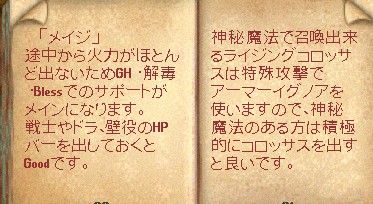 「メイジ」
途中から火力がほとん
ど出ないためGH・解毒
・Blessでのサポートが
メインになります。
戦士やドラ、壁役のHP
バーを出しておくと
Goodです。
神秘魔法で召喚出来
るライジングコロッサ
スは特殊攻撃で
アーマーイグノアを
使いますので、神秘
魔法のある方は積極
的にコロッサスを出す
と良いです。